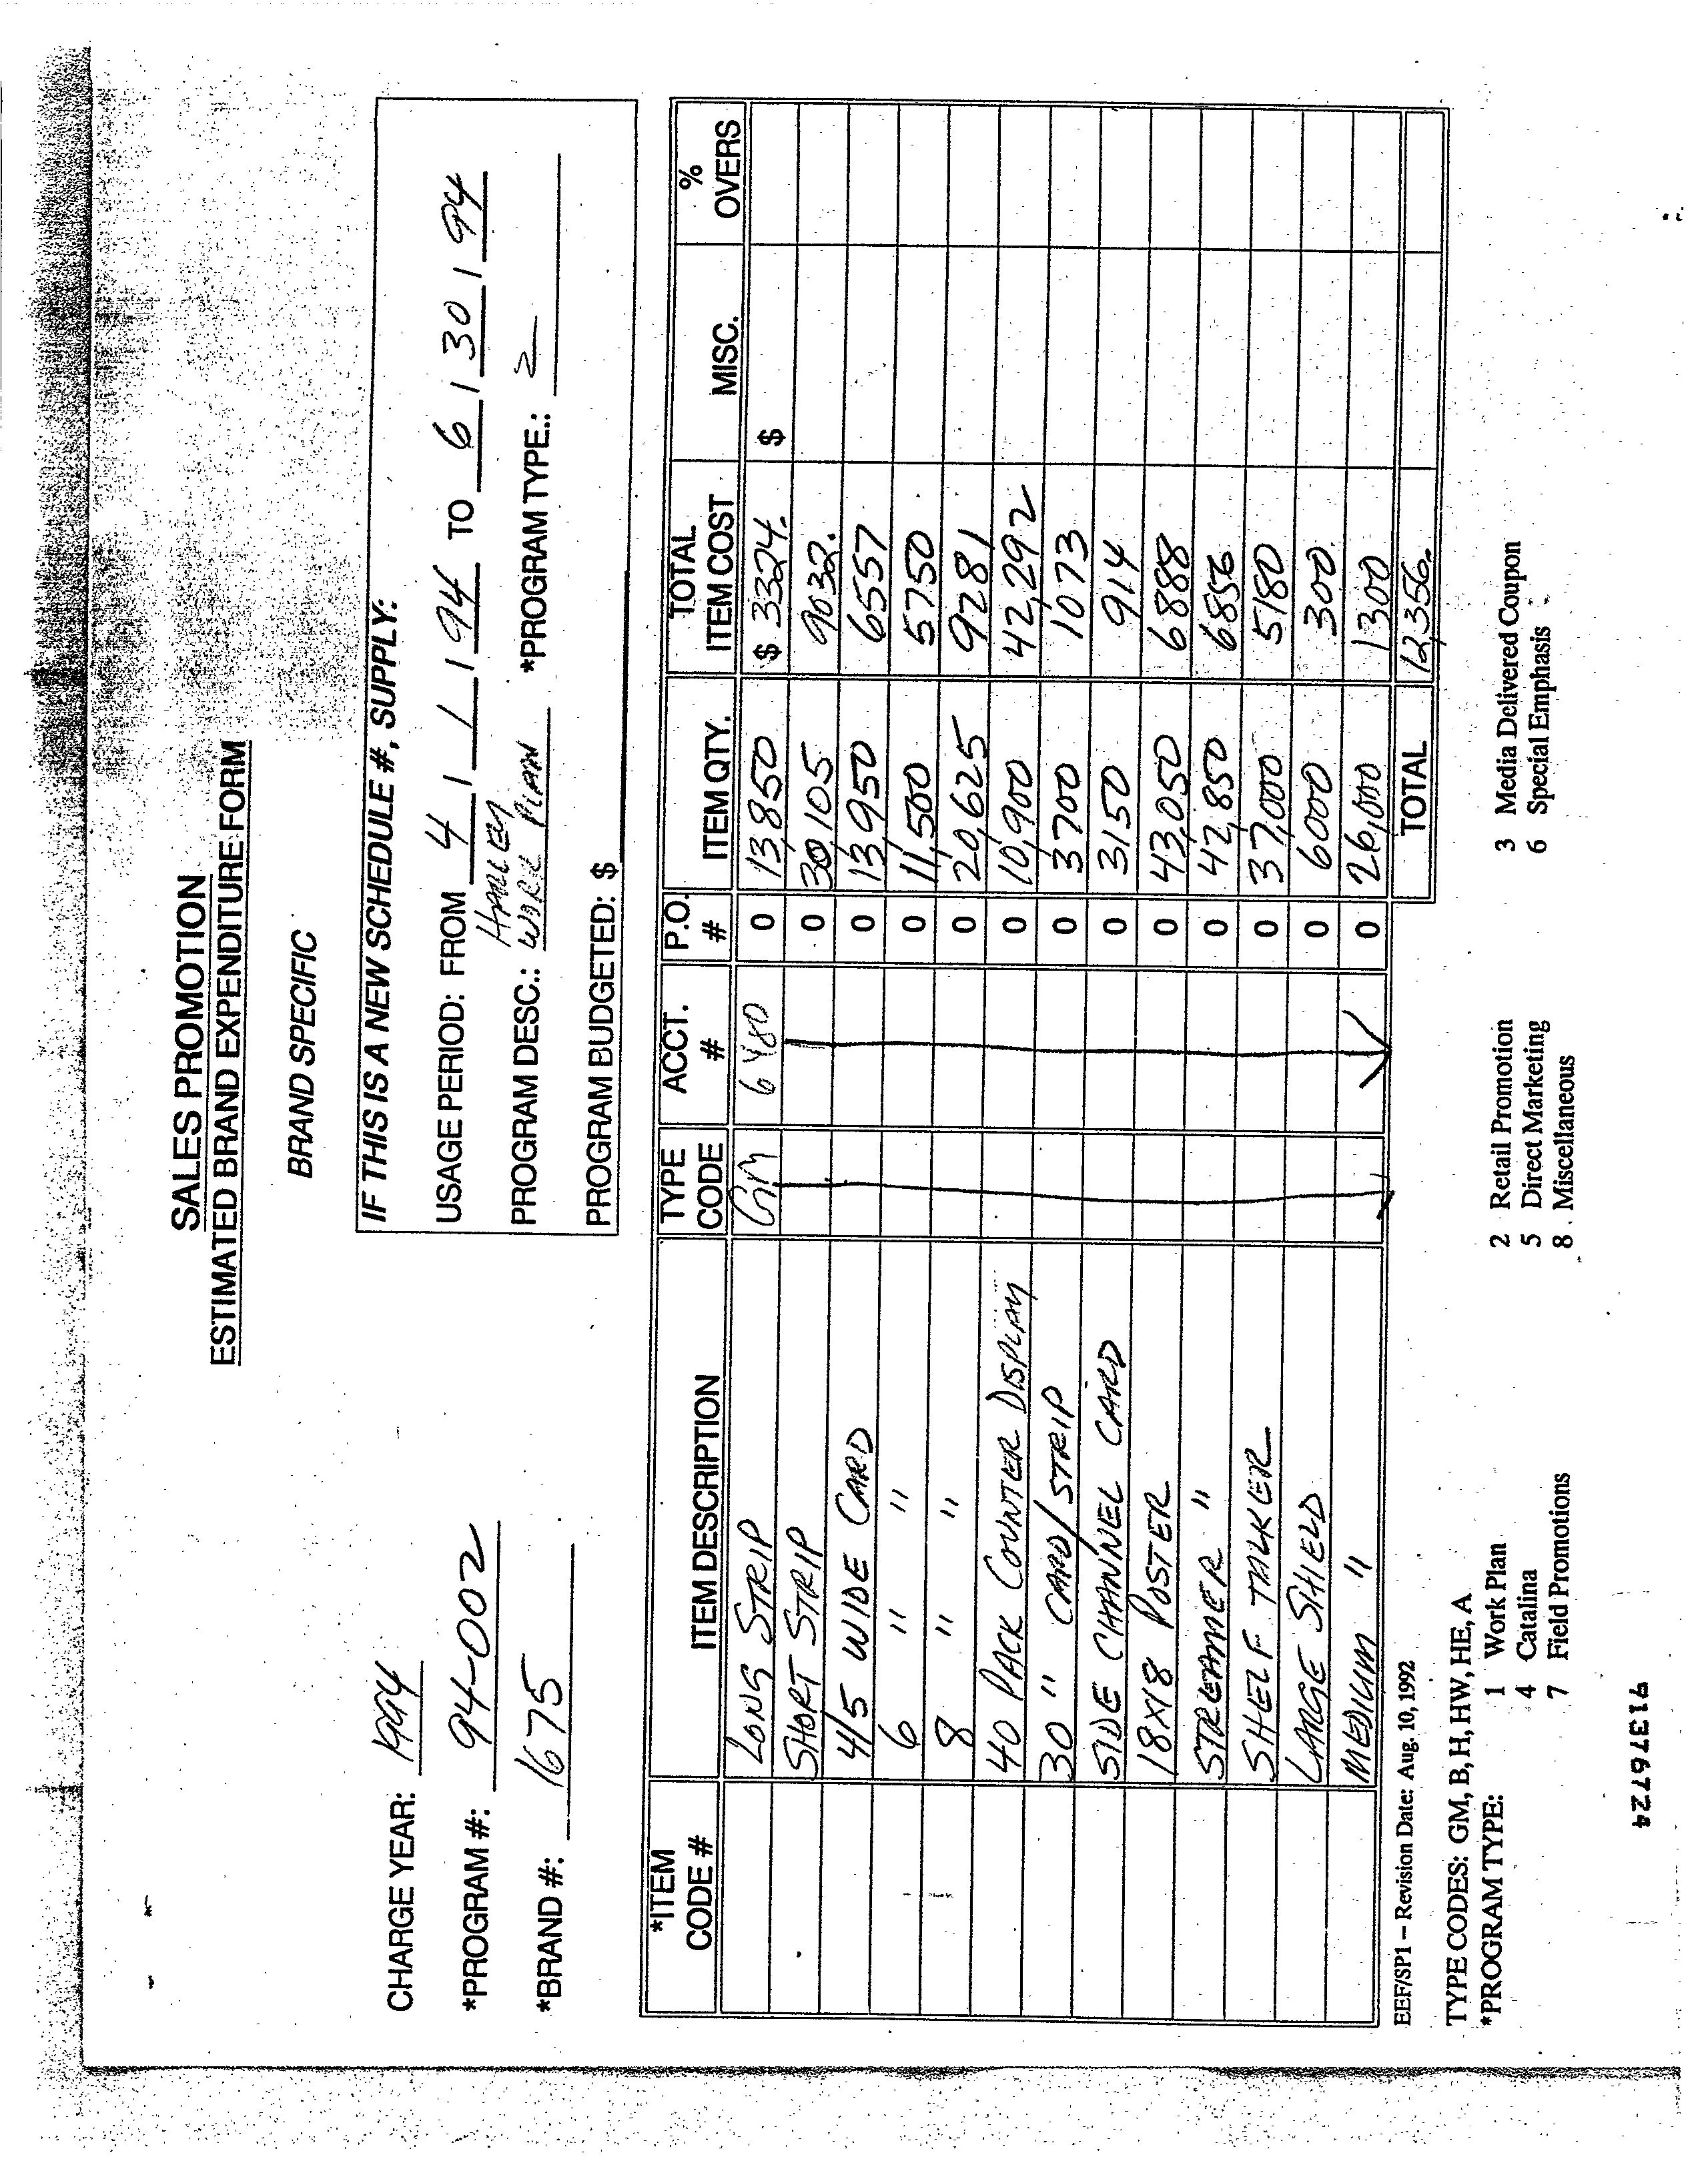 SALES PROMOTION
ESTIMATED BRAND EXPENDITURE FORM
BRAND SPECIFIC
CHARGE YEAR: 1994
*PROGRAM #: 94-002
*BRAND #: 1675
IF THIS IS A NEW SCHEDULE #, SUPPLY:
USAGE PERIOD: FROM 4 / 1 / 94 TO 6 / 30 / 94
PROGRAM DESC.: HARLEY WORK PLAN *PROGRAM TYPE.: 2
PROGRAM BUDGETED: $
*ITEM CODE # ITEM DESCRIPTION TYPE CODE ACCT. # P.O. # ITEM QTY. TOTAL ITEM COST MISC. % OVERS
LONG STRIP GM 6480 0 13,850 $ 3324. $
SHORT STRIP 0 30,105 9032.
4/5 WIDE CARD 0 13,950 6557
6 " " 0 11,500 5750
8 " " 0 20,625 9281
40 PACK COUNTER DISPLAY 0 10,900 42,292
30 " CARD/STRIP 0 3700 1073
SIDE CHANNEL CARD 0 3150 914
18X18 POSTER 0 43,050 6888
STREAMER " 0 42,850 6856
SHELF TALKER 0 37,000 5180
LARGE SHIELD 0 6000 300
MEDIUM " 0 26,000 1300
TOTAL 12,356.
EEF/SP1 – Revision Date: Aug. 10, 1992
TYPE CODES: GM, B, H, HW, HE, A
*PROGRAM TYPE: 1 Work Plan 2 Retail Promotion 3 Media Delivered Coupon
4 Catalina 5 Direct Marketing 6 Special Emphasis
7 Field Promotions 8 Miscellaneous
91376724